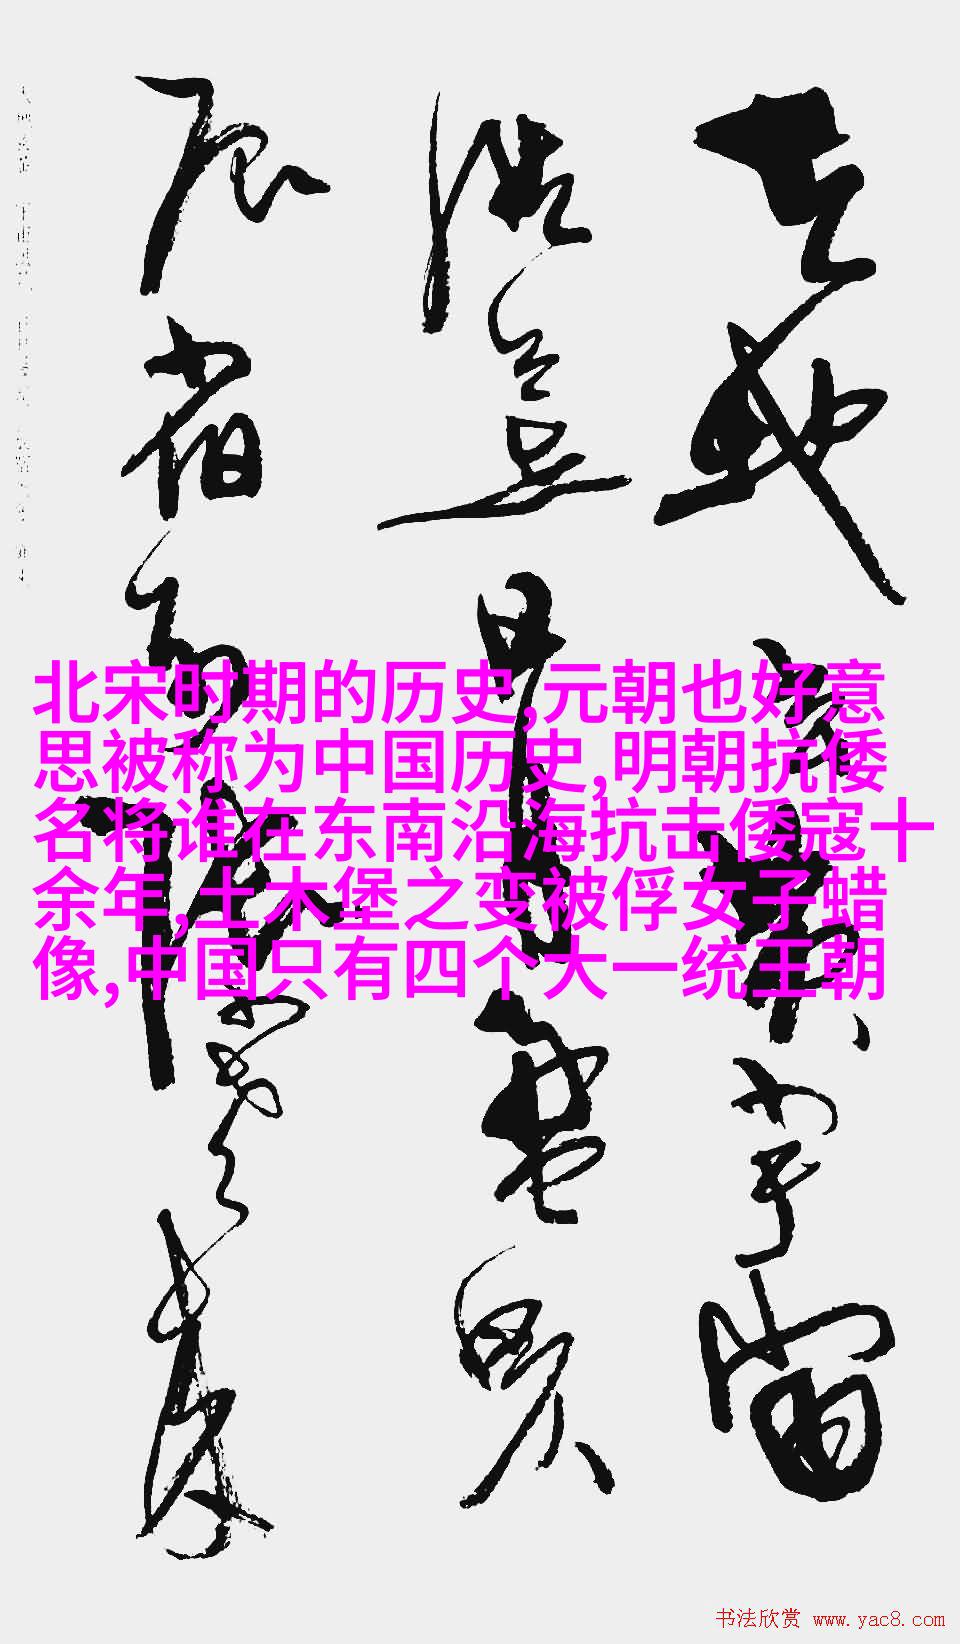 天地玄黄宇宙
洪荒日月盈昃
辰宿列张寒来
北宋时期的历史,元朝也好意
思被称为中国历史,明朝抗倭
名将谁在东南沿海抗击倭寇十
余年,土木堡之变被俘女子蜡
像,中国只有四个大一统王朝
书法欣赏 www.yac8.com